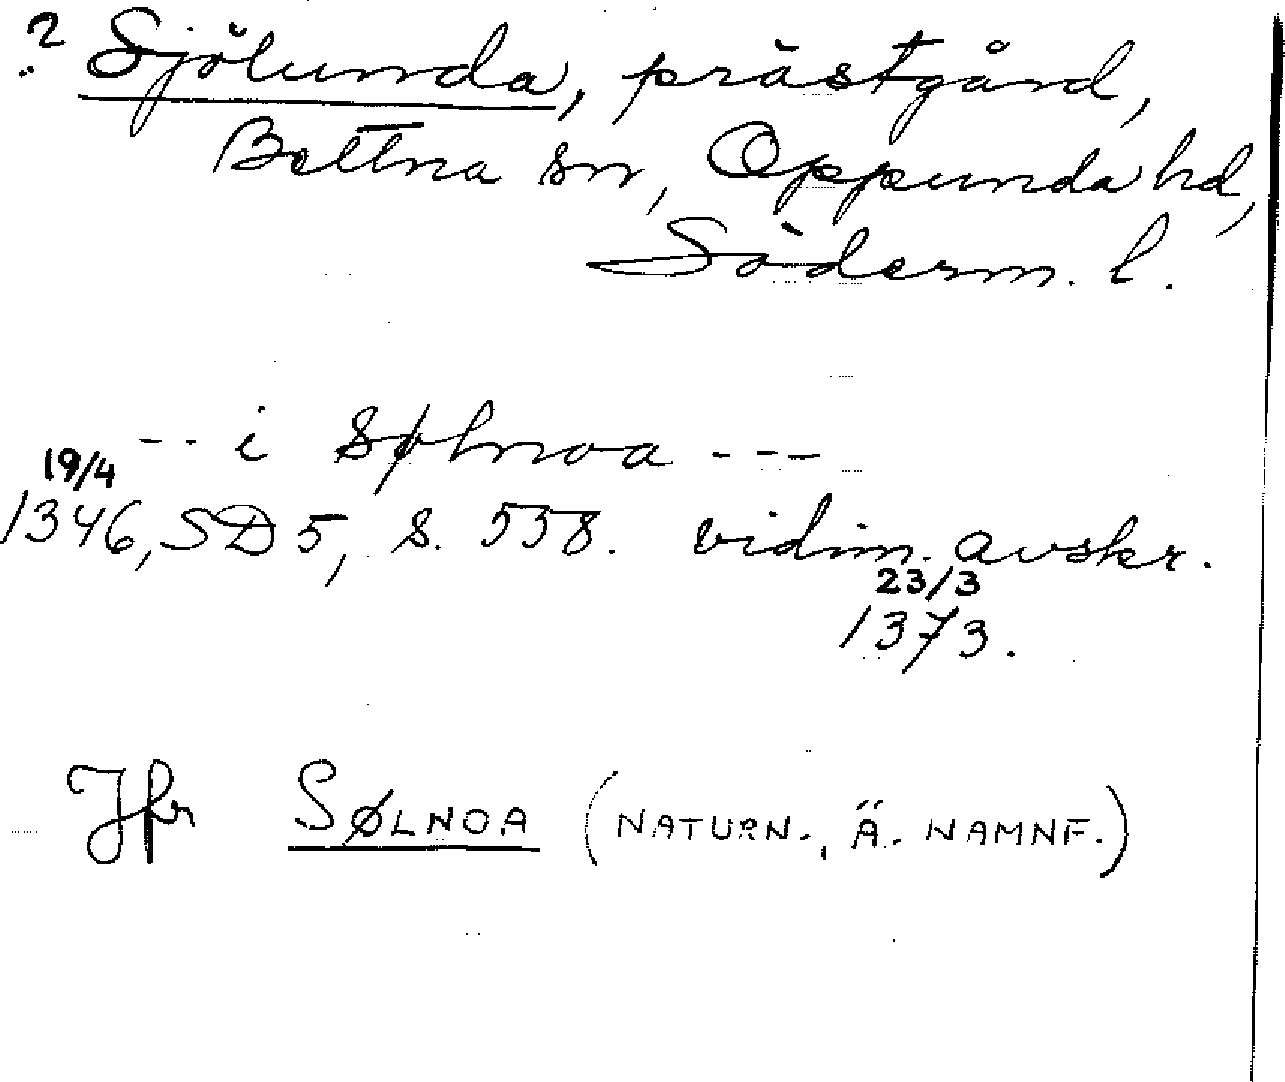 ? Sjölunda, prästgård,
Bettna sn, Oppunda hd,
Söderm. l.
-- i Sølnoa ---
19/4
1346, SD 5, s. 558. vidim. avskr.
23/3
1373.
Jfr SØLNOA (NATURN., Ä. NAMNF.)